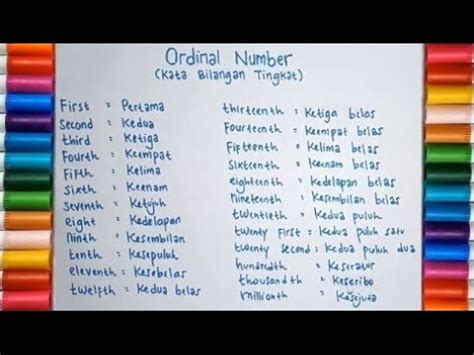 Ordinal Number
(Kata Bilangan Tingkat)
First = Pertama
Second = Kedua
third = Ketiga
Fourth = Keempat
Fifth = Kelima
Sixth = Keenam
Seventh = Ketujuh
eight = Kedelapan
ninth = Kesembilan
tenth = Kesepuluh
eleventh = Kesebelas
twelfth = Kedua belas
thirteenth = Ketiga belas
Fourteenth = Keempat belas
Fifteenth = Kelima belas
Sixteenth = Keenam belas
eighteenth = Kedelapan belas
nineteenth = Kesembilan belas
twentieth = Kedua puluh
twenty First = Kedua puluh satu
twenty Second = Kedua puluh dua
hundredth = Keseratus
thousandth = Keseribu
millionth = Kesejuta